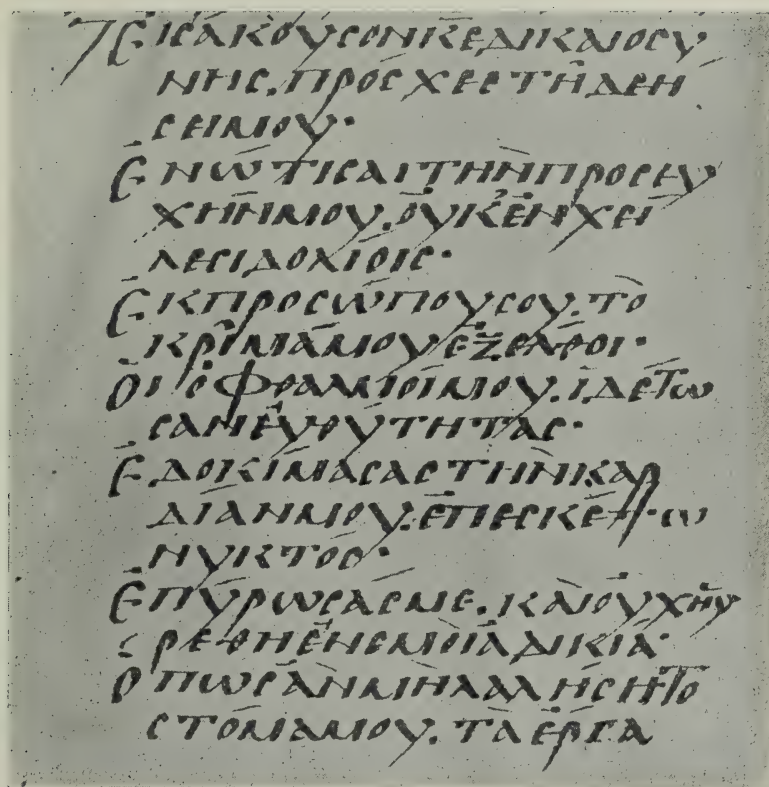 ΕΙϹΑΚΟΥϹΟΝ Κ̅Ε̅ ΔΙΚΑΙΟϹΥ
ΝΗϹ. ΠΡΟϹΧΕϹ ΤΗ ΔΕΗ
ϹΕΙ ΜΟΥ·
ΕΝΩΤΙϹΑΙ ΤΗΝ ΠΡΟϹΕΥ
ΧΗΝ ΜΟΥ. ΟΥΚ ΕΝ ΧΕΙ
ΛΕϹΙ ΔΟΛΙΟΙϹ·
ΕΚ ΠΡΟϹΩΠΟΥ ϹΟΥ. ΤΟ
ΚΡΙΜΑ ΜΟΥ ΕΞΕΛΘΟΙ·
ΟΙ ΟΦΘΑΛΜΟΙ ΜΟΥ. ΙΔΕΤΩ
ϹΑΝ ΕΥΘΥΤΗΤΑϹ·
ΕΔΟΚΙΜΑϹΑϹ ΤΗΝ ΚΑΡ
ΔΙΑΝ ΜΟΥ. ΕΠΕϹΚΕΨΩ
ΝΥΚΤΟϹ·
ΕΠΥΡΩϹΑϹ ΜΕ. ΚΑΙ ΟΥΧ ΗΥ
ΡΕΘΗ ΕΝ ΕΜΟΙ ΑΔΙΚΙΑ·
ΟΠΩϹ ΑΝ ΜΗ ΛΑΛΗϹΗ ΤΟ
ϹΤΟΜΑ ΜΟΥ. ΤΑ ΕΡΓΑ